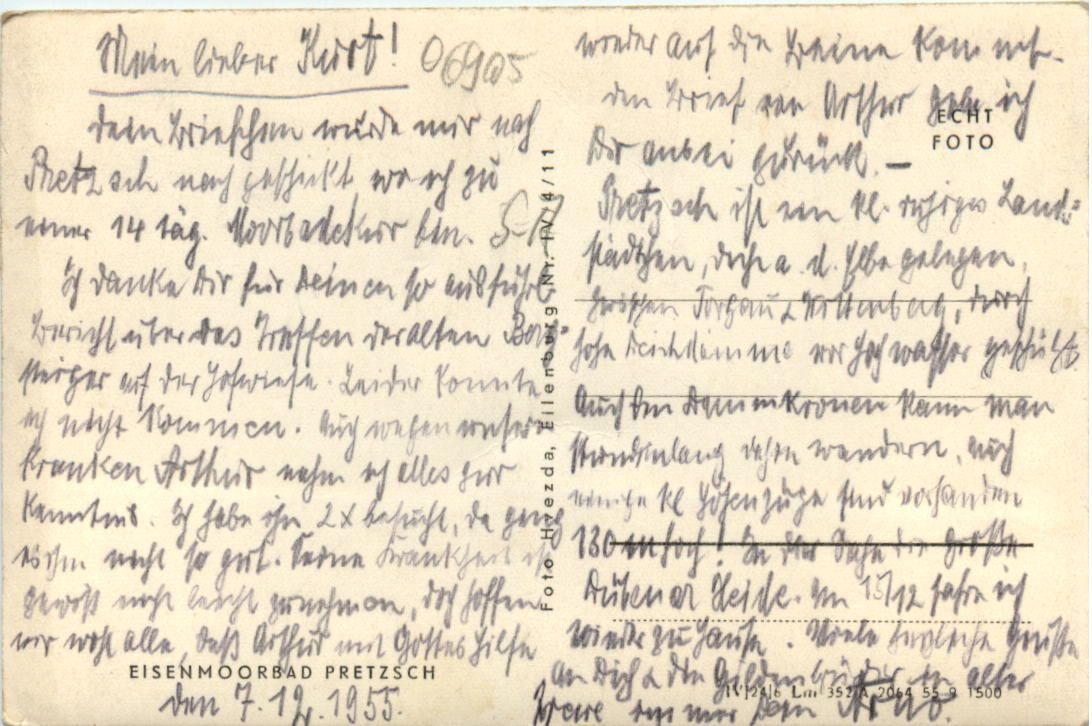 Mein lieber Kurt!
06905
Dein Briefchen wurde mir nach
Pretzsch nach geschickt wo ich zu
einer 14 täg. Moorbadekur bin.
Ich danke Dir für Deinen so ausführl.
Bericht über das Treffen der alten Berg=
steiger auf der Hofwiese. Leider konnte
ich nicht kommen. Auch wegen unseren
kranken Arthur nahm ich alles zur
Kenntnis. Ich habe ihn 2x besucht, da ging
es ihm nicht so gut. Seine Krankheit ist
gewiß nicht leicht zunehmen, doch hoffen
wir wohl alle, daß Arthur mit Gottes Hilfe
EISENMOORBAD PRETZSCH
den 7.12.1955.
Foto Hvezda, Eilenburg Nr. IV/4/11
wieder auf die Beine kommt.
den Brief von Arthur gebe ich
ECHT
FOTO
Dir anbei zurück. —
Pretzsch ist ein kl. ruhiges Land=
städtchen, dicht a. d. Elbe gelegen,
zwischen Torgau & Wittenberg, durch
hohe Deichdämme vor Hochwasser geschützt.
Auf den Dammkronen kann man
stundenlang wandern, auch
einige kl Höhenzüge sind vorhanden
130 m hoch! In der Nähe die große
Dübener Heide. Am 15/12 fahre ich
wieder zu Hause. Viele herzliche Grüße
an Dich & die Gildenbrüder in alter
IV/24/6 Lm 352 A 2064 55 9 1500
Treue immer Dein Arno.